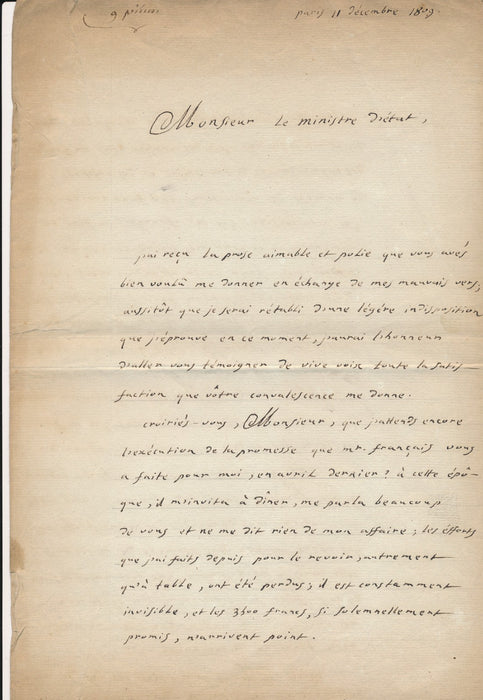 9 pilim
paris 11 décembre 1809.
Monsieur le ministre d'état,
j'ai reçu la prose aimable et polie que vous avés
bien voulû me donner en échange de mes mauvais vers;
aussitôt que je serai rétabli d'une légére indisposition
que j'éprouve en ce moment, j'aurai l'honneur
d'aller vous témoigner de vive voix toute la satis
faction que vôtre convalescence me donne.
croiriés-vous, Monsieur, que j'attends encore
l'exécution de la promesse que mr. français vous
a faite pour moi, en avril dernier? à cette épô-
que, il m'invita à dîner, me parla beaucoup
de vous et ne me dit rien de mon affaire; les efforts
que j'ai faits depuis pour le revoir, autrement
qu'à table, ont été perdus; il est constamment
invisible, et les 3600 francs, si solemnellement
promis, n'arrivent point.